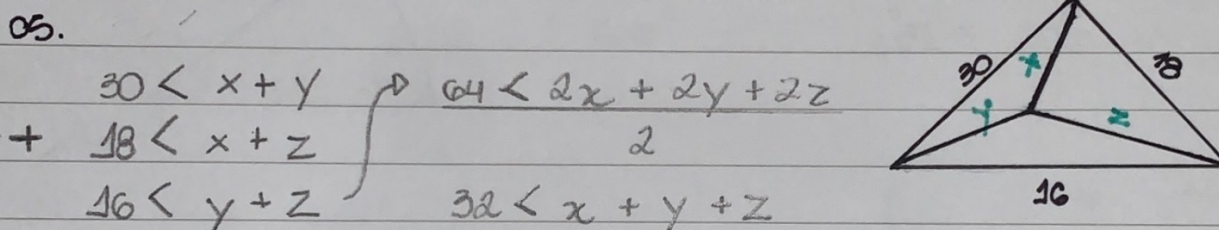 05.
30 < x + y
+ 18 < x + z
16 < y + z
64 < 2x + 2y + 2z
2
32 < x + y + z
30
x
y
z
16